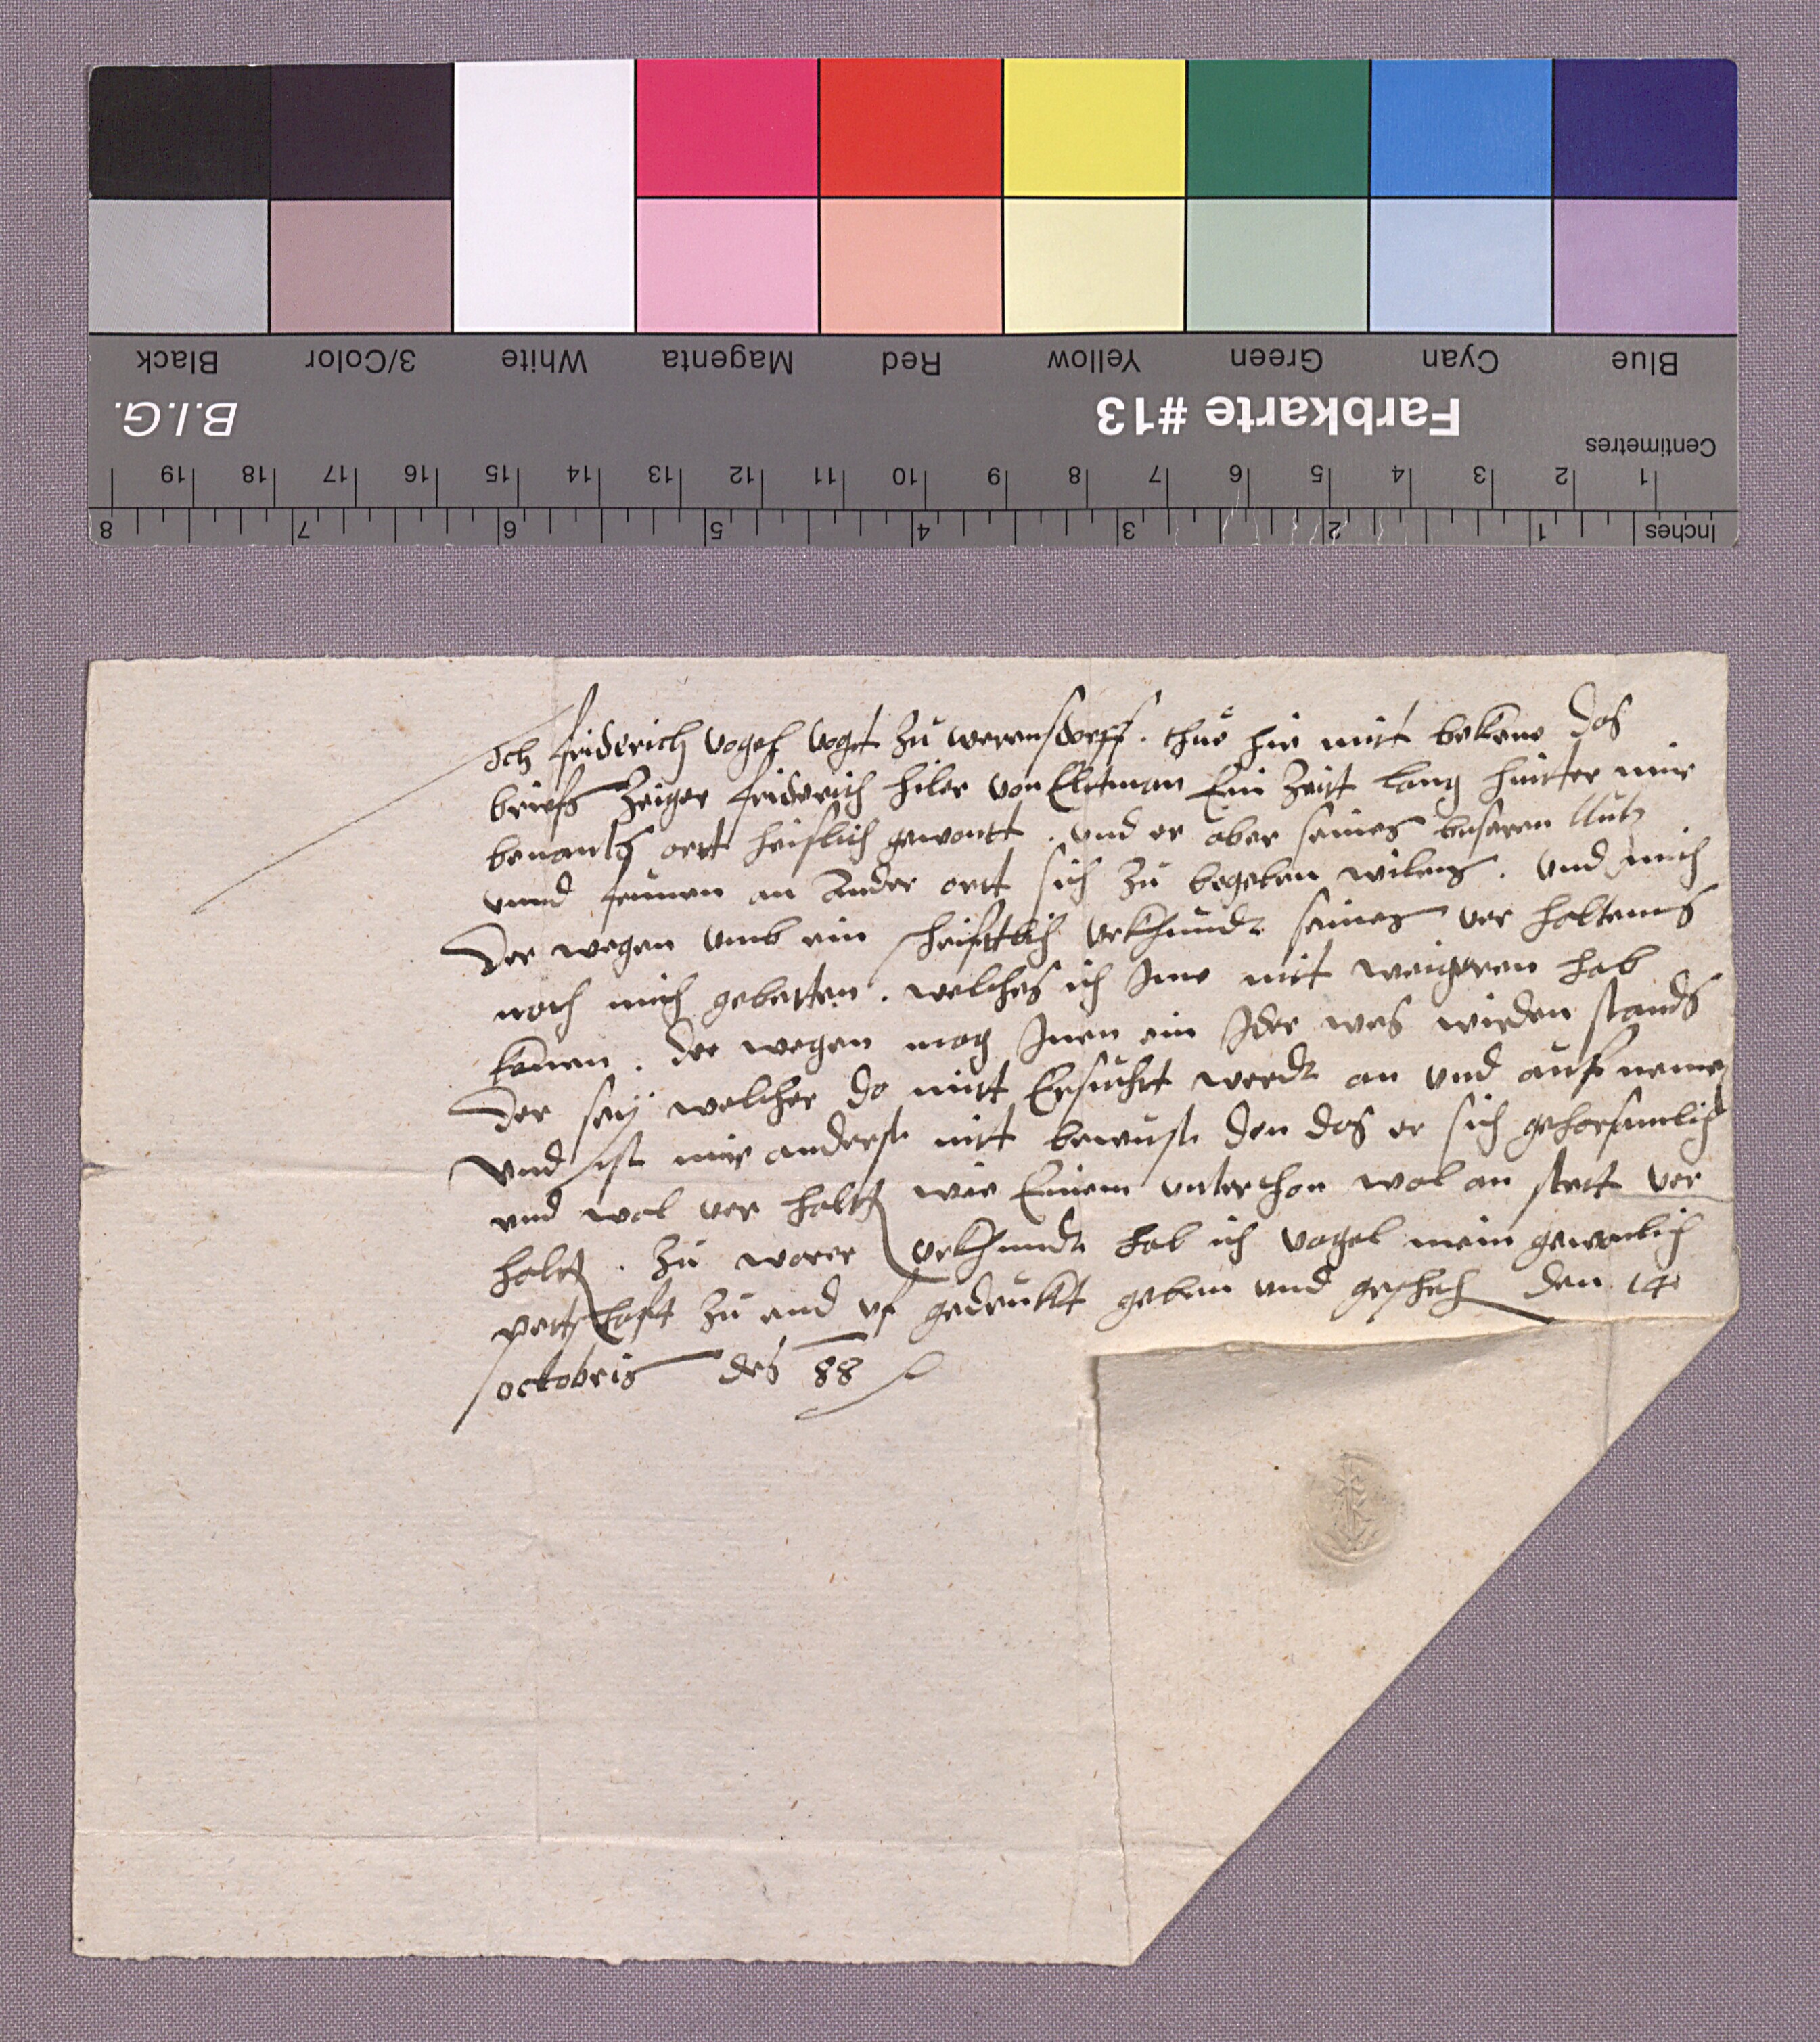 Black 3/Color White Magenta Red Yellow Green Cyan Blue
B.I.G. Farbkarte #13
Centimetres
19 18 17 16 15 14 13 12 11 10 9 8 7 6 5 4 3 2 1
8 7 6 5 4 3 2 1 Inches
Ich friderich vogel vogt zu werensdorff. thue hie mit bekene das
briefs Zeiger friderich hiler von Eltman Ein Zeit lang hinter mir
benants ort heislich gewont. und er aber seines beseren Nutz
unnd an Ander ort sich zu begeben wilens. und mich
Der wegen umb ein schriftlich urkhundt seines ver haltens
noch mich gebetten. welches ich Ime nit weigeren hab
kenen. der wegen mag Inen ein Ider wes wirden stands
Der sey welcher do mit Ersucht werdt an und auf neme
Und ist mir anderst nit bewust den das er sich gehorsamlich
und wol ver halten wie Einem unterthon wol an stett ver
halten. zu warer urkhundt hab ich vogel mein gewenlich
zu end uf gedrukt geben und geschehen den 14
octobris des 88